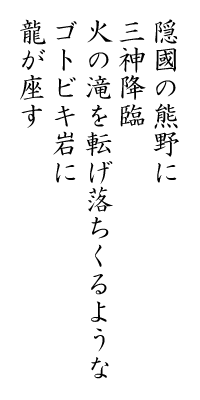 隠國の熊野に
三神降臨
火の滝を転げ落ちくるような
ゴトビキ岩に
龍が座す